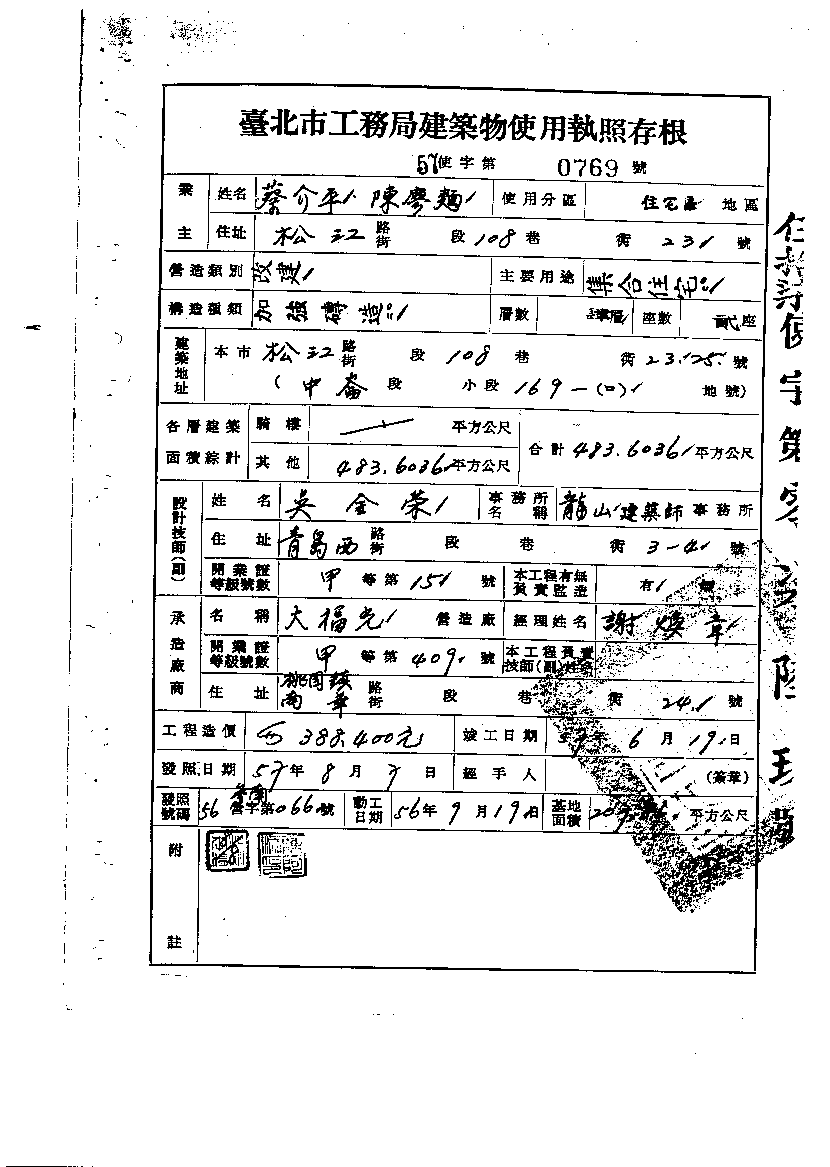 臺北市工務局建築物使用執照存根
57使字第 0769 號
業主 姓名 蔡介平 陳廖麵 使用分區 住宅區 地區
住址 松江 路街 段 108 巷 街 231 號
營造類別 改建 主要用途 集合住宅
構造種類 加強磚造 層數 座數 貳座
建築地址 本市 松江 路街 段 108 巷 街 23.25. 號
( 中崙 段 小段 169-(口) 地號)
各層建築面積綜計 騎樓 平方公尺 合計 483.6036 平方公尺
其他 483.6036 平方公尺
設計技師(副) 姓名 吳全榮 事務所名稱 龍山建築師 事務所
住址 青島西 路街 段 巷 街 3-4 號
開業證等級號數 甲 等第 151 號 本工程有無負責監造 有
承造廠商 名稱 大福光 營造廠 經理姓名 謝煥章
開業證等級號數 甲 等第 409 號 本工程負責技師(副)姓名
住址 桃園鎮 路街 段 巷 街 24.1 號
工程造價 388.400元 竣工日期 57年 6 月 19 日
發照日期 57年 8 月 日 經手人 (簽章)
發照號碼 56 營字第066 號 動工日期 56年 9 月 19 日 基地面積 平方公尺
附註
伍拾柒使字第零